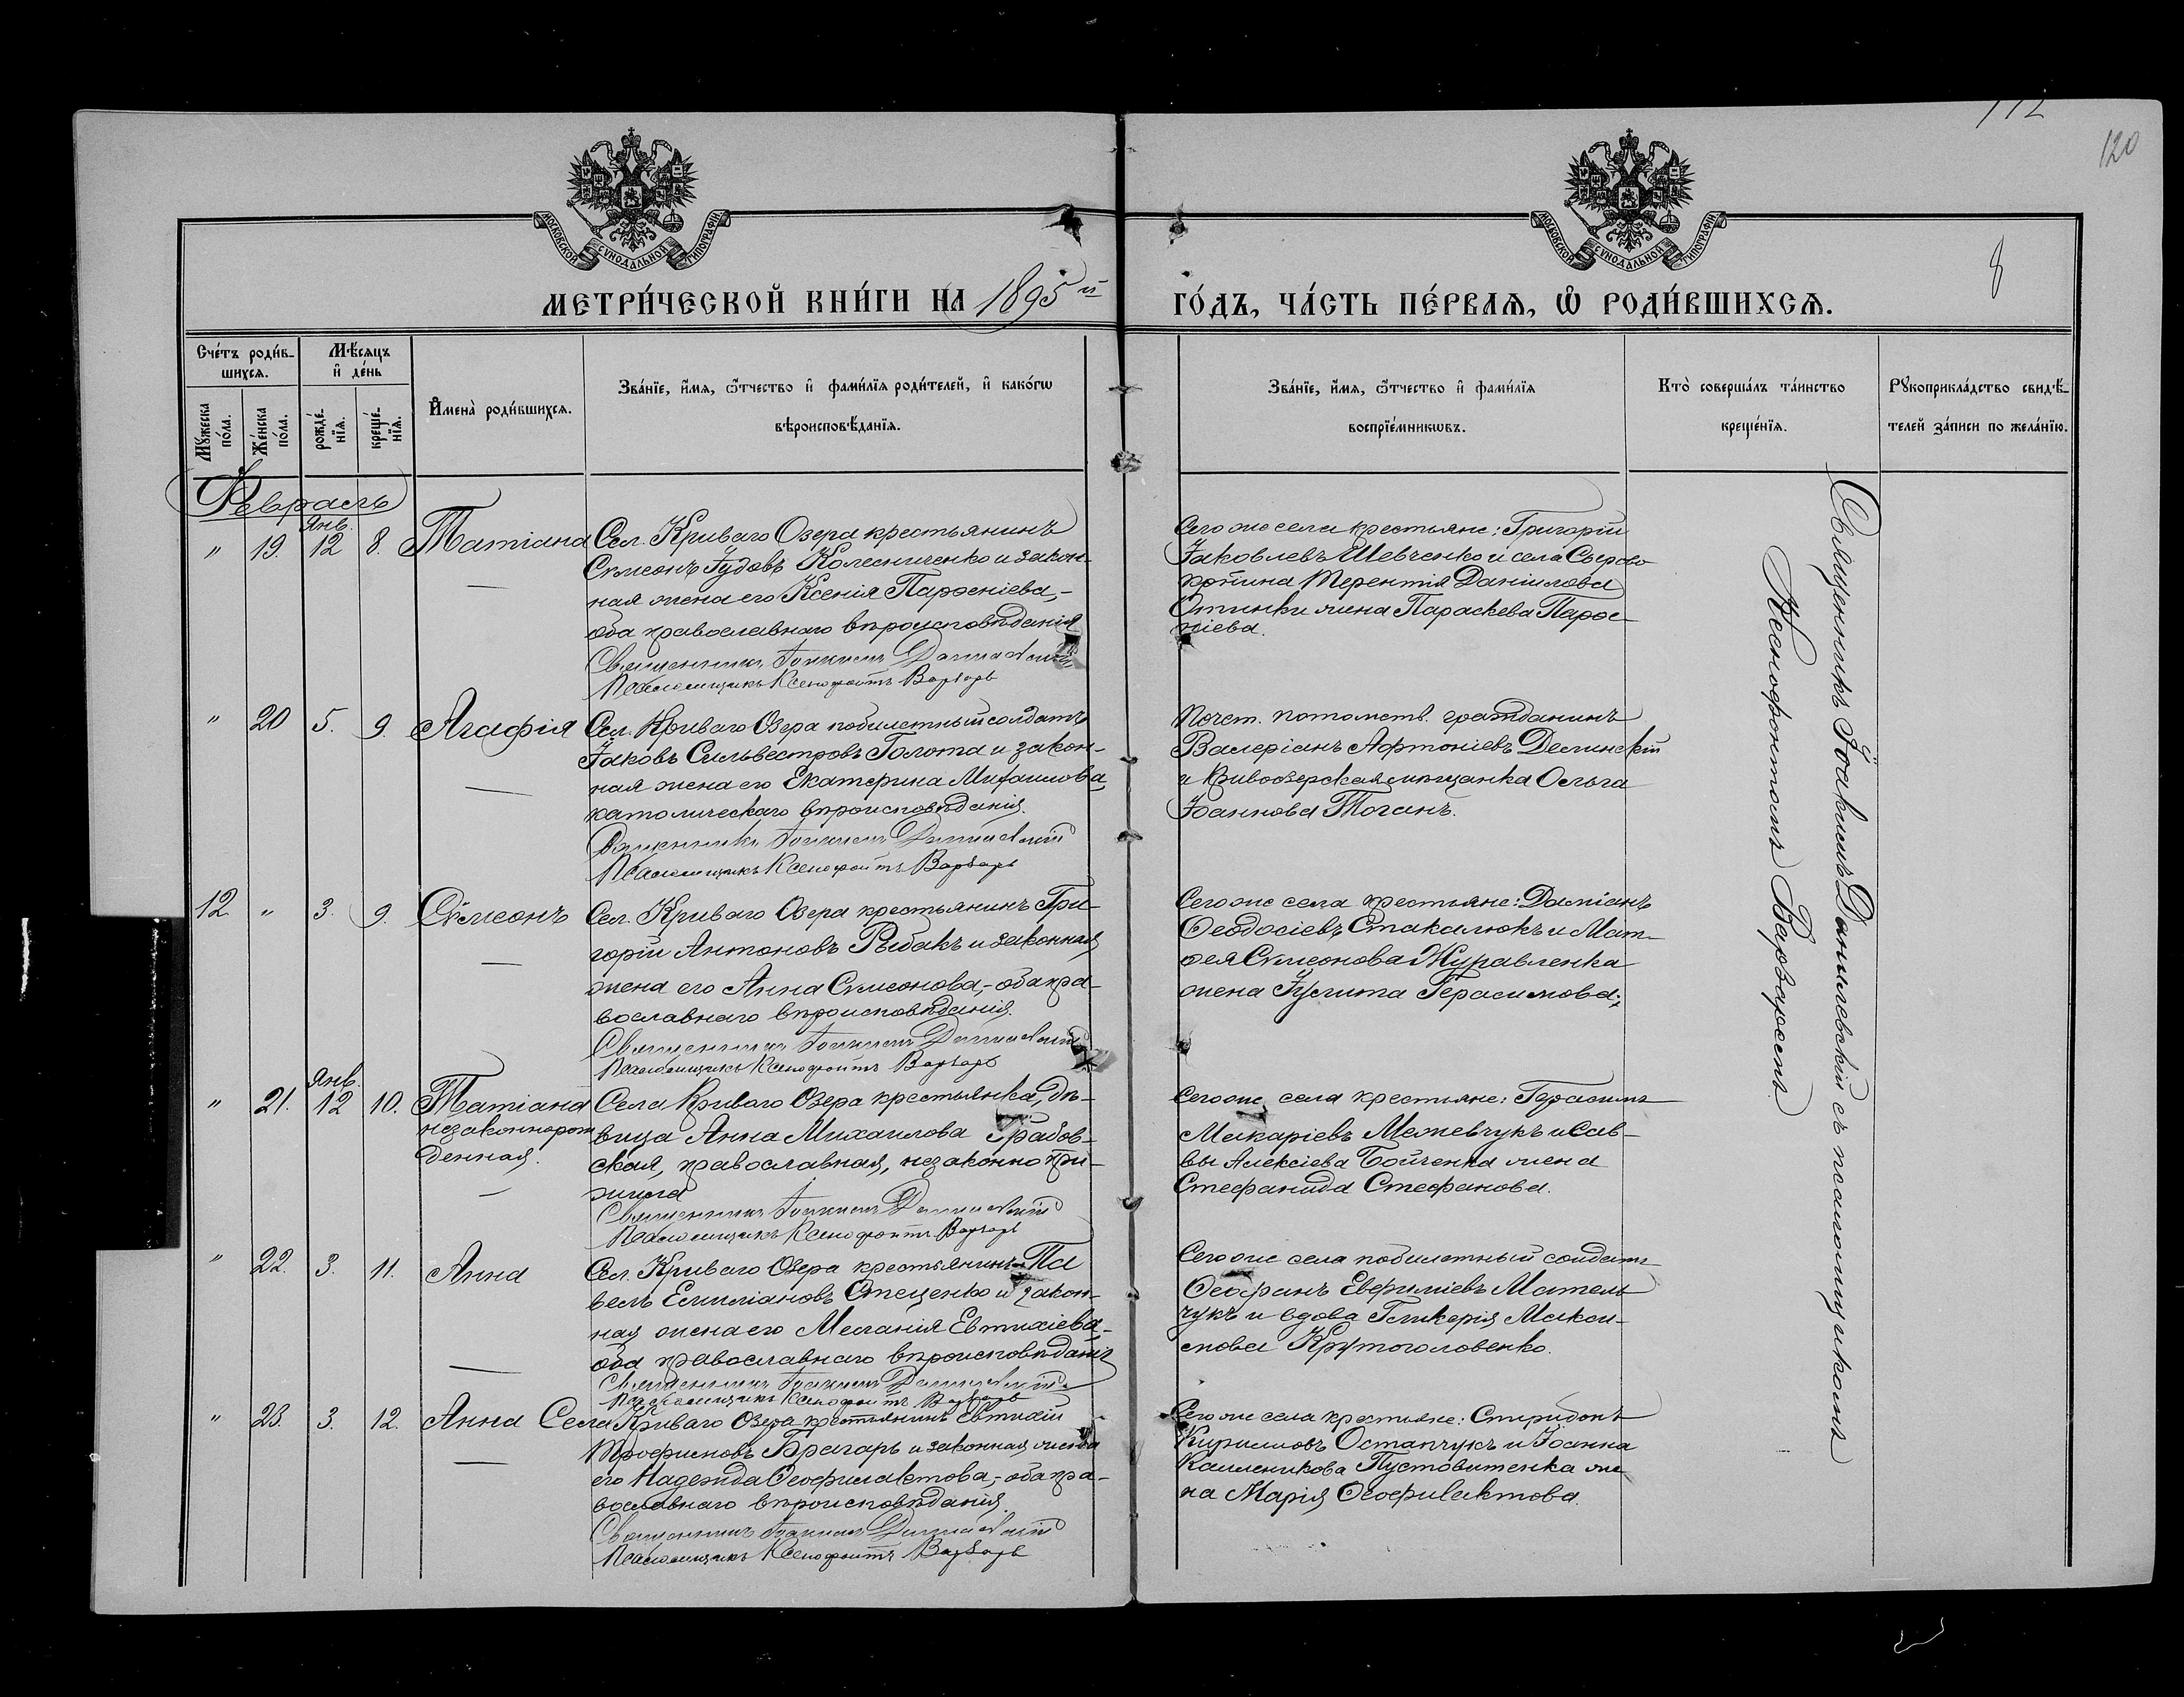 112
120
8
МОСКОВСКОЙ СУНОДАЛЬНОЙ ТИПОГРАФІИ
МОСКОВСКОЙ СУНОДАЛЬНОЙ ТИПОГРАФІИ
МЕТРИ́ЧЕСКОЙ КНИ́ГИ НА 1895й ГО́ДЪ, ЧА́СТЬ ПЕ́РВАѦ, Ѡ҆ РОДИ́ВШИХСѦ.
Сче́тъ роди́в-
шихсѧ.
Мѣ́сѧцъ
и҆ де́нь
Мꙋ́жеска по́ла.
Же́нска по́ла.
рожде́-нїѧ.
креще́-нїѧ.
И҆мена̀ роди́вшихсѧ.
Зва́нїе, и҆́мѧ, ѻ҆́тчество и҆ фами́лїѧ роди́телей, и҆ како́гѡ
вѣроисповѣ́данїѧ.
Зва́нїе, и҆́мѧ, ѻ҆́тчество и҆ фами́лїѧ
воспрїе́мникѡвъ.
Кто̀ соверша́лъ та́инство
креще́нїѧ.
Рꙋкоприкла́дство свидѣ́-
телей за́писи по жела́нїю.
Февраль
" 19. Янв. 12 8. Татіана
Сел. Криваго Озера крестьянинъ
Сѵмеонъ Іудовъ Колесниченко и закон-
ная жена его Ксенія Парѳеніева,-
оба православнаго вѣроисповѣданія
Священникъ Іоакимъ Данилевскій
Псаломщикъ Ксенофонтъ Варзарь
Сего же села крестьяне: Григорій
Іаковлевъ Шевченко и села Сырово
Терентія Даніилова
жена Параскева Парѳе-
ніева.
" 20 5. 9. Агафія
Сел. Криваго Озера побилетный солдатъ
Іаковъ Сильвестровъ Голота и закон-
ная жена его Екатерина Михаилова
католическаго вѣроисповѣданія.
Священникъ Іоакимъ Данилевскій
Псаломщикъ Ксенофонтъ Варзарь
Почет. потомств. гражданинъ
Валеріанъ Афтоніевъ
и Кривоозерская мѣщанка Ольга
Іоаннова Тоганъ.
12 " 3. 9. Сѵмеонъ
Сел. Криваго Озера крестьянинъ Гри-
горій Антоновъ Рыбакъ и законная
жена его Анна Сѵмеонова,- оба пра-
вославнаго вѣроисповѣданія.
Священникъ Іоакимъ Данилевскій
Псаломщикъ Ксенофонтъ Варзарь
Сего же села крестьяне: Даміанъ
Ѳеодосіевъ Стакалюкъ и Мат-
ѳея Сѵмеонова Журавленка
жена Іустина Герасимова.
" 21. Янв. 12 10. Татіана
незаконнорож
денная.
Села Криваго Озера крестьянка, дѣ-
вица Анна Михаилова Грабов-
ская, православная, незаконно при-
жила
Священникъ Іоакимъ Данилевскій
Псаломщикъ Ксенофонтъ Варзарь
Сего же села крестьяне: Герасимъ
Макаріевъ Межевчукъ и Сав-
вы Алексіева Бойченка жена
Стефанида Стефанова.
" 22. 3. 11. Анна
Сел. Криваго Озера крестьянинъ Па
велъ Емиліановъ Стеценко и закон-
ная жена его Меланія Евтихіева,-
оба православнаго вѣроисповѣданія
Священникъ Іоакимъ Данилевскій
Псаломщикъ Ксенофонтъ Варзарь
Сего же села побилетный солдатъ
Ѳеофанъ Евфиміевъ Мател
чукъ и вдова Гликерія Макси-
мова Крутоголовенко.
" 23. 3. 12. Анна
Села Криваго Озера крестьянинъ Евтихій
Трофимовъ Брагарь и законная жена
его Надежда Ѳеофилактова,- оба пра-
вославнаго вѣроисповѣданія.
Священникъ Іоакимъ Данилевскій
Псаломщикъ Ксенофонтъ Варзарь
Сего же села крестьяне: Спиридонъ
Кирилловъ Остапчукъ и Іоанна
Каллиникова Пустовитенка же
на Марія Ѳеофилактова.
Священникъ Іоакимъ Данилевскій съ псаломщикомъ
Ксенофонтомъ Варзаремъ.